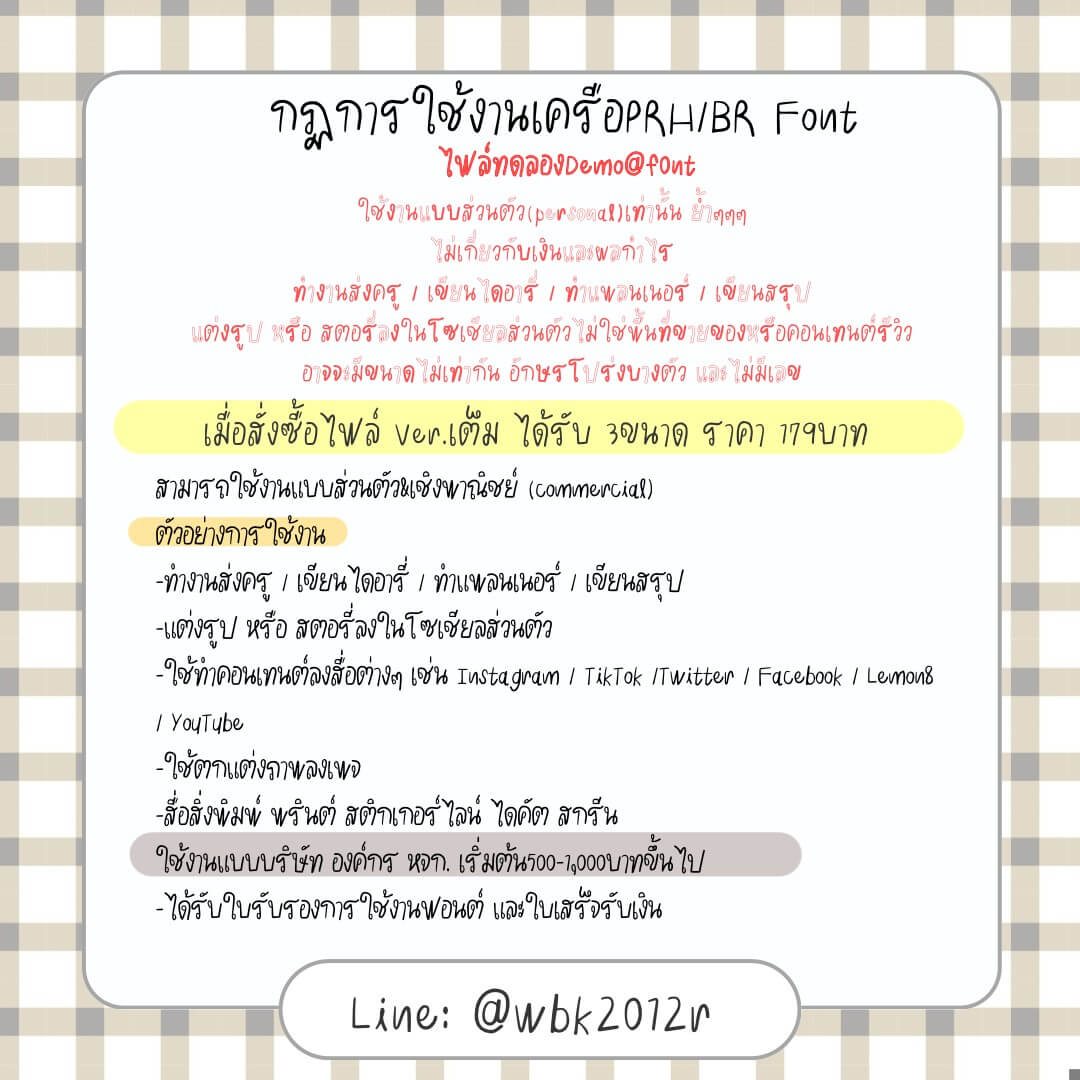 กฎการใช้งานเครือPRH/BR Font
ไฟล์ทดลองDemo@font
ใช้งานแบบส่วนตัว(personal)เท่านั้น ย้ำๆๆๆ
ไม่เกี่ยวกับเงินและผลกำไร
ทำงานส่งครู / เขียนไดอารี่ / ทำแพลนเนอร์ / เขียนสรุป
แต่งรูป หรือ สตอรี่ลงในโซเชียลส่วนตัวไม่ใช่พื้นที่ขายของหรือคอนเทนต์รีวิว
อาจจะมีขนาดไม่เท่ากัน อักษรโปร่งบางตัว และไม่มีเลข
เมื่อสั่งซื้อไฟล์ Ver.เต็ม ได้รับ 3ขนาด ราคา 179บาท
สามารถใช้งานแบบส่วนตัว&เชิงพาณิชย์ (commercial)
ตัวอย่างการใช้งาน
-ทำงานส่งครู / เขียนไดอารี่ / ทำแพลนเนอร์ / เขียนสรุป
-แต่งรูป หรือ สตอรี่ลงในโซเชียลส่วนตัว
-ใช้ทำคอนเทนต์ลงสื่อต่างๆ เช่น Instagram / TikTok /Twitter / Facebook / Lemon8
/ YouTube
-ใช้ตกแต่งภาพลงเพจ
-สื่อสิ่งพิมพ์ พรินต์ สติกเกอร์ไลน์ ไดคัต สกรีน
ใช้งานแบบบริษัท องค์กร หจก. เริ่มต้น500-1,000บาทขึ้นไป
-ได้รับใบรับรองการใช้งานฟอนต์ และใบเสร็จรับเงิน
Line: @wbk2012r